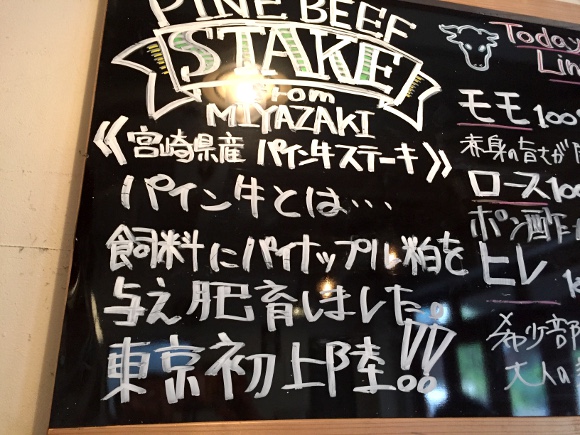 PINE BEEF
STAKE
From
MIYAZAKI
《宮崎県産 パイン牛ステーキ》
パイン牛とは…
飼料にパイナップル粕を
与え肥育しました。
東京初上陸!!
Today
Lin
モモ 100
赤身の旨さが
ロース 100
ポン酢
ヒレ
希少部
大人の